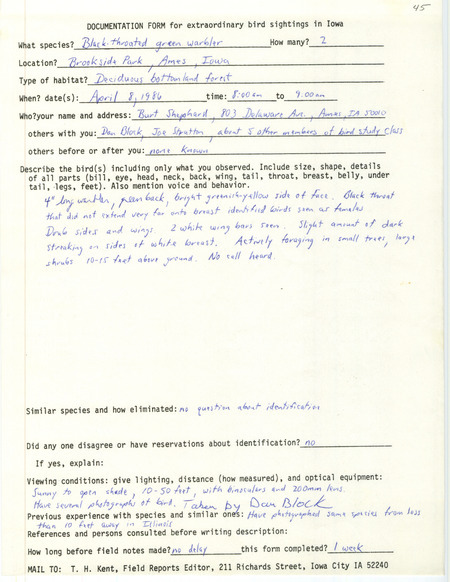 45
DOCUMENTATION FORM for extraordinary bird sightings in Iowa
What species? Black-throated green warbler How many? 2
Location? Brookside Park, Ames, Iowa
Type of habitat? Deciduous bottomland forest
When? date(s): April 8, 1986 time: 8:00am to 9:00am
Who?your name and address: Burt Shephard, 803 Delaware Ave., Ames, IA 50010
others with you: Dan Block, Joe Stratton, about 5 other members of bird study class
others before or after you: none known
Describe the bird(s) including only what you observed. Include size, shape, details
of all parts (bill, eye, head, neck, back, wing, tail, throat, breast, belly, under
tail, legs, feet). Also mention voice and behavior.
4" long warbler, green back, bright greenish-yellow side of face. Black throat
that did not extend very far onto breast identified birds seen as females.
Drab sides and wings. 2 white wing bars seen. Slight amount of dark
streaking on sides of white breast. Actively foraging in small trees, large
shrubs 10-15 feet above ground. No call heard.
Similar species and how eliminated: no question about identification
Did any one disagree or have reservations about identification? no
If yes, explain:
Viewing conditions: give lighting, distance (how measured), and optical equipment:
Sunny to open shade, 10-50 feet, with binoculars and 200mm lens.
Have several photographs of bird. Taken by Dan Block
Previous experience with species and similar ones: Have photographed same species from less
than 10 feet away in Illinois
References and persons consulted before writing description:
How long before field notes made? no delay this form completed? 1 week
MAIL TO: T. H. Kent, Field Reports Editor, 211 Richards Street, Iowa City IA 52240